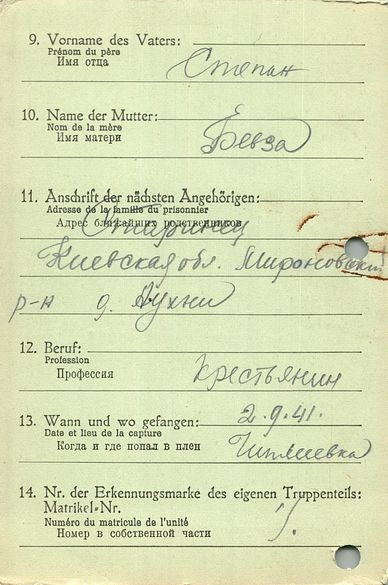 9. Vorname des Vaters:
Prénom du père
Имя отца
Степан
10. Name der Mutter:
Nom de la mère
Имя матери
Бевза
11. Anschrift der nächsten Angehörigen:
Adresse de la famille du prisonnier
Адрес ближайших родственников
Киевская обл. Мироновский
р-н д.
12. Beruf:
Profession
Профессия
крестьянин
13. Wann und wo gefangen:
2.9.41.
Date et lieu de la capture
Когда и где попал в плен
14. Nr. der Erkennungsmarke des eigenen Truppenteils:
Matrikel-Nr.
Numéro du matricule de l'unité
Номер в собственной части